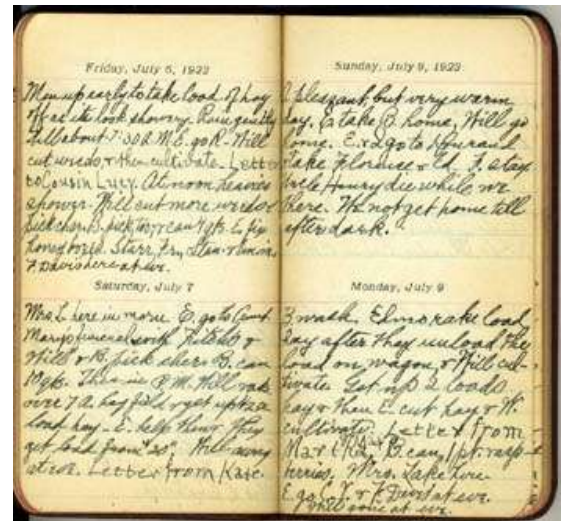 Friday, July 6, 1923
Men up early to take load of hay
off as it look showery. Rain gently
till about 7:30 A.M. E. go R. Will
cut weeds & then cultivate. Letter
to Cousin Lucy. At noon heavier
shower. Will cut more weeds &
pick cher. B. pick too, & can 7 qts. E. fix
Starr, Fr,
F. Davis here at eve.
Saturday, July 7
Mrs. L. here in morn. E. go to Aunt
Mary's funeral with
Will & B. pick cher. B. can
10 qts. P.M. Will rake
over 7 A. hay field & get up
load hay. E. help them. They
get load from "20". Will away
at eve. Letter from Kate.
Sunday, July 8, 1923
A pleasant, but very warm
day. E. take B. home, Will go
home. E. & I go to H
take Florence & Ed. F. stay
Uncle Henry die while we
there. We not get home till
after dark.
Monday, July 9
B. wash. Elmo rake load
hay after they unload the
load on wagon, & Will cul-
tivate. Get up 2 loads
hay & then E. cut hay & W.
cultivate. Letter from
Martha. B. can 1 pt. rasp-
berries. Mrs. Lake here
E. go & F. Davis at eve.
Will gone at eve.